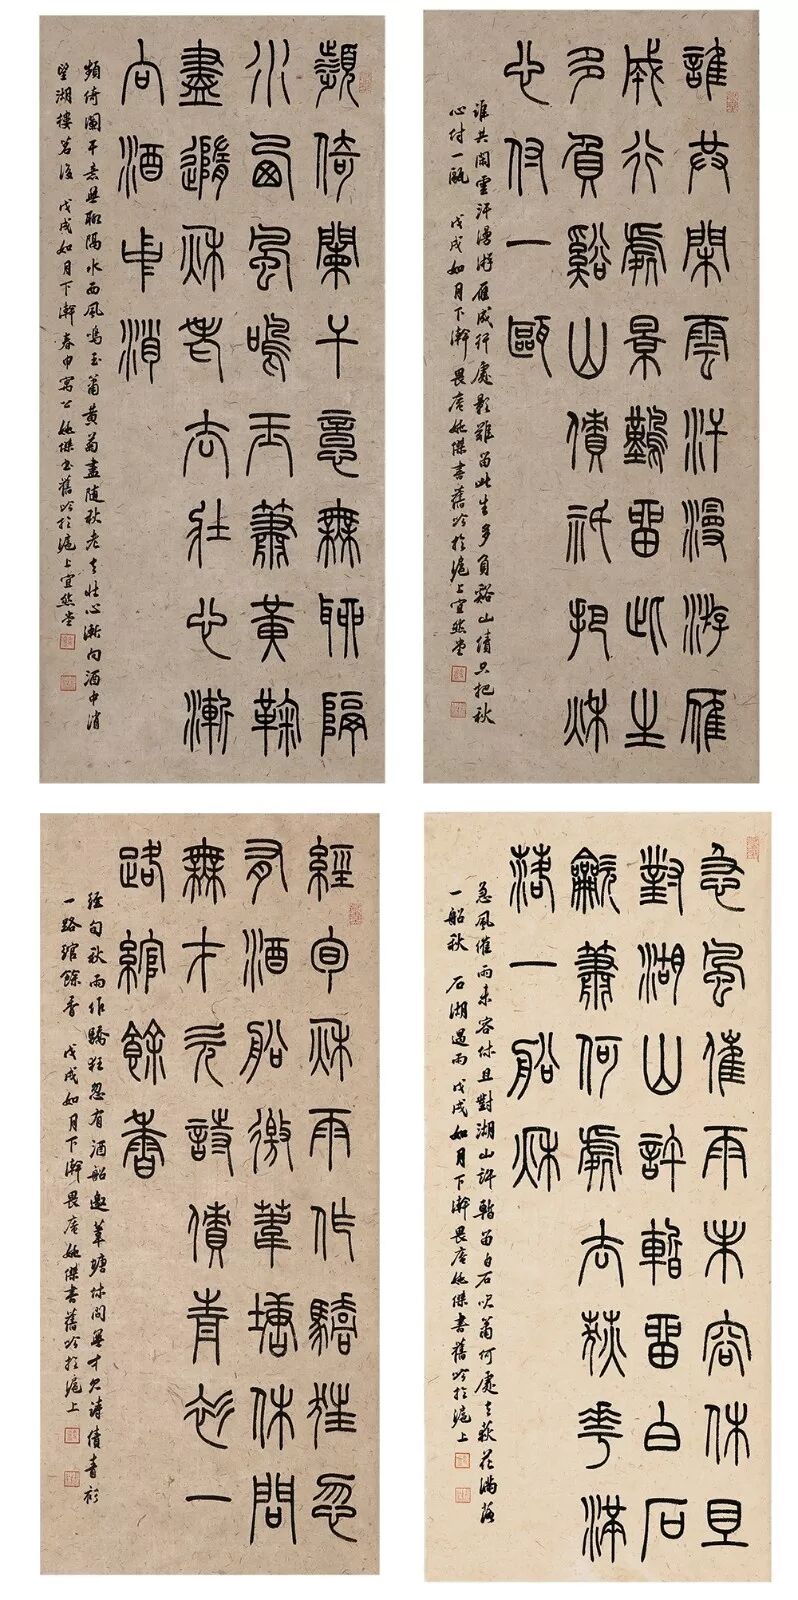 誰共閑雲汗漫游雁
成行處景難留此生
多負谿山債祇把秋
心付一甌
誰共閑雲汗漫游雁成行處影難留此生多負谿山債只把秋
心付一甌 戊戌如月下澣畏庵姚傑書舊吟於滬上宜然堂
頻倚闌干意無聊隔
水西風鳴玉簫黃鞠
盡隨秋老去壯心漸
向酒中消
頻倚闌干意無聊隔水西風鳴玉簫黃菊盡隨秋老去壯心漸向酒中消
望湖樓茗後 戊戌如月下澣春申寓公姚傑書舊吟於滬上宜然堂
急風催雨未容休且
對湖山許暫留白石
龡簫何處去荻花滿
落一船秋
急風催雨未容休且對湖山許暫留白石吹簫何處去荻花滿落
一船秋 石湖遇雨 戊戌如月下澣畏庵姚傑書舊吟於滬上
經旬秋雨作驕狂忽
有酒船邀葦塘休問
無才欠詩債青衫一
路綰餘香
經旬秋雨作驕狂忽有酒船邀葦塘休問無才欠詩債青衫
一路綰餘香 戊戌如月下澣畏庵姚傑書舊吟於滬上